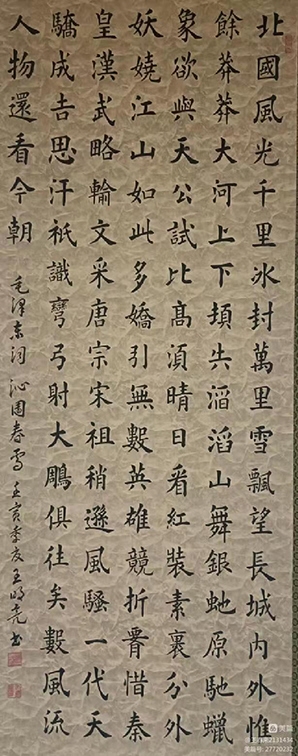 北國風光千里冰封萬里雪飄望長城内外惟
餘莽莽大河上下頓失滔滔山舞銀虵原馳蠟
象欲與天公試比高須晴日看紅裝素裹分外
妖嬈江山如此多嬌引無數英雄競折腰惜秦
皇漢武略輸文采唐宗宋祖稍遜風騷一代天
驕成吉思汗衹識彎弓射大鵰俱往矣數風流
人物還看今朝
毛澤東詞 沁園春雪 壬寅季夏王 書
美篇
美篇号: 27720232